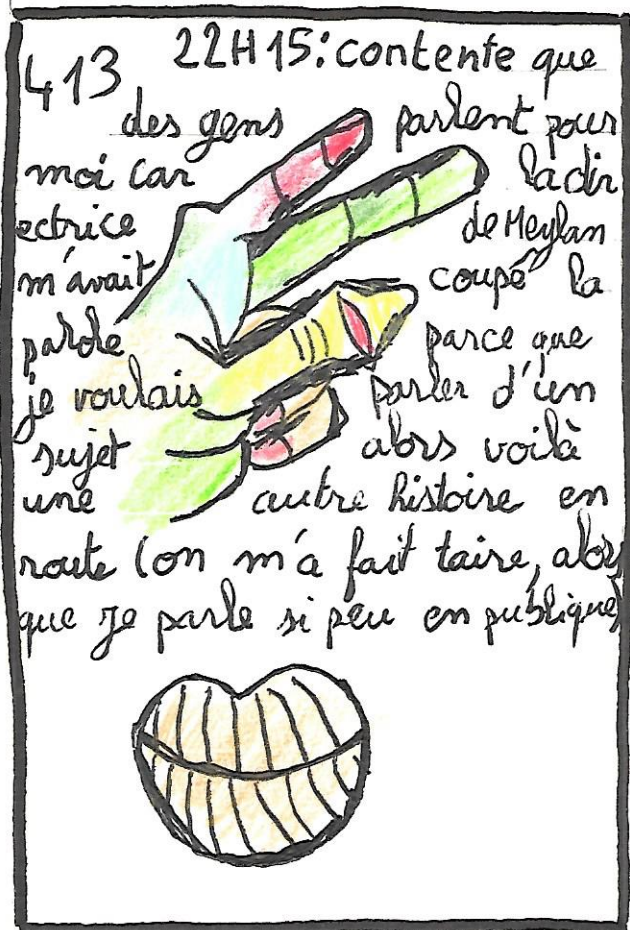 413 22H15: contente que
des gens parlent pour
moi car la dir
ectrice de Meylan
m'avait coupé la
parole parce que
je voulais parler d'un
sujet alors voilà
une autre histoire en
route (on m'a fait taire, alors
que je parle si peu en publique)